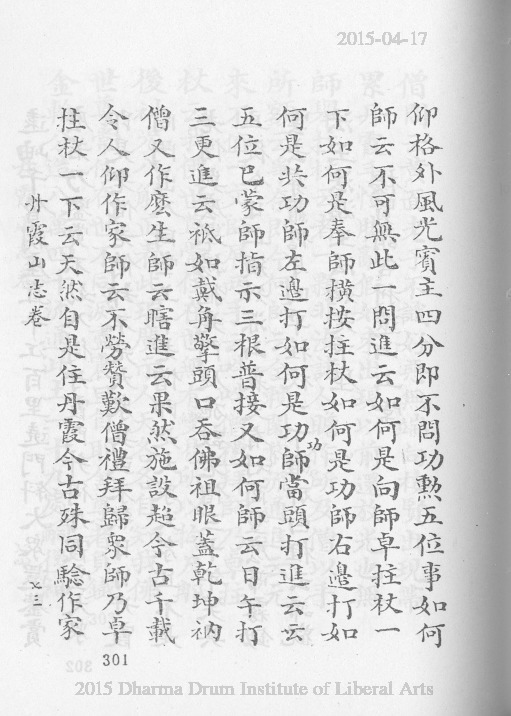 2015-04-17
仰格外風光賓主四分即不問功勲五位事如何
師云不可無此一問進云如何是向師卓拄杖一
下如何是奉師横按拄杖如何是功師右邉打如
何是共功師左邉打如何是功功師當頭打進云云
五位已蒙師指示三根普接又如何師云日午打
三更進云祇如戴角擎頭口吞佛祖眼蓋乾坤衲
僧又作麽生師云瞎進云果然施設超今古千載
令人仰作家師云不勞贊歎僧禮拜歸衆師乃卓
拄杖一下云天然自是住丹霞今古殊同驗作家
丹霞山志卷
七三
301
2015 Dharma Drum Institute of Liberal Arts